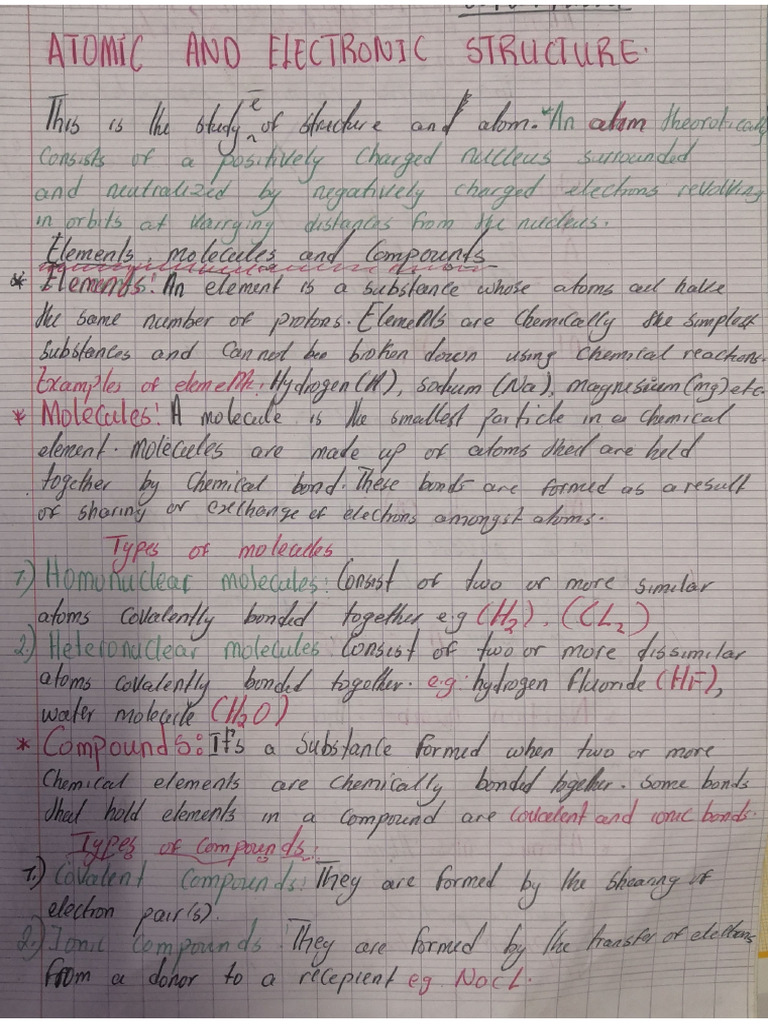 ATOMIC AND ELECTRONIC STRUCTURE.
This is the study of structure and atom. An atom theoretically
consists of a positively charged nucleus surrounded
and neutralized by negatively charged electrons revolving
in orbits at varrying distances from the nucleus.
Elements, molecules and Compounds
* Elements: An element is a substance whose atoms all have
the same number of protons. Elements are chemically the simplest
substances and cannot be broken down using chemical reactions.
Examples of element: Hydrogen(H), sodium (Na), magnesium(mg)etc.
* Molecules: A molecule is the smallest particle in a chemical
element. molecules are made up of atoms that are held
together by chemical bond. These bonds are formed as a result
of sharing or exchange of electrons amongst atoms.
Types of molecules
1) Homonuclear molecules: Consist of two or more similar
atoms covalently bonded together e.g (H2), (CL2)
2) Heteronuclear molecules: Consist of two or more dissimilar
atoms covalently bonded together. e.g: hydrogen fluoride (HF),
water molecule (H2O)
* Compounds: It's a substance formed when two or more
chemical elements are chemically bonded together. Some bonds
that hold elements in a compound are covalent and ionic bonds.
Types of compounds:
1.) Covalent compounds: They are formed by the shearing of
electron pair(s).
2.) Ionic Compounds They are formed by the transfer of electrons
from a donor to a recepient eg. NaCL.